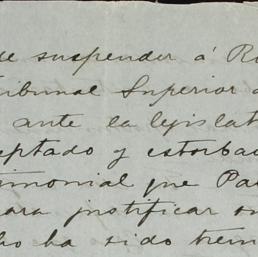 de suspender á R
Tribunal Superior
ante la legislat
eptado y estorba
imonial que Pa
para justificar
ho ha sido trem